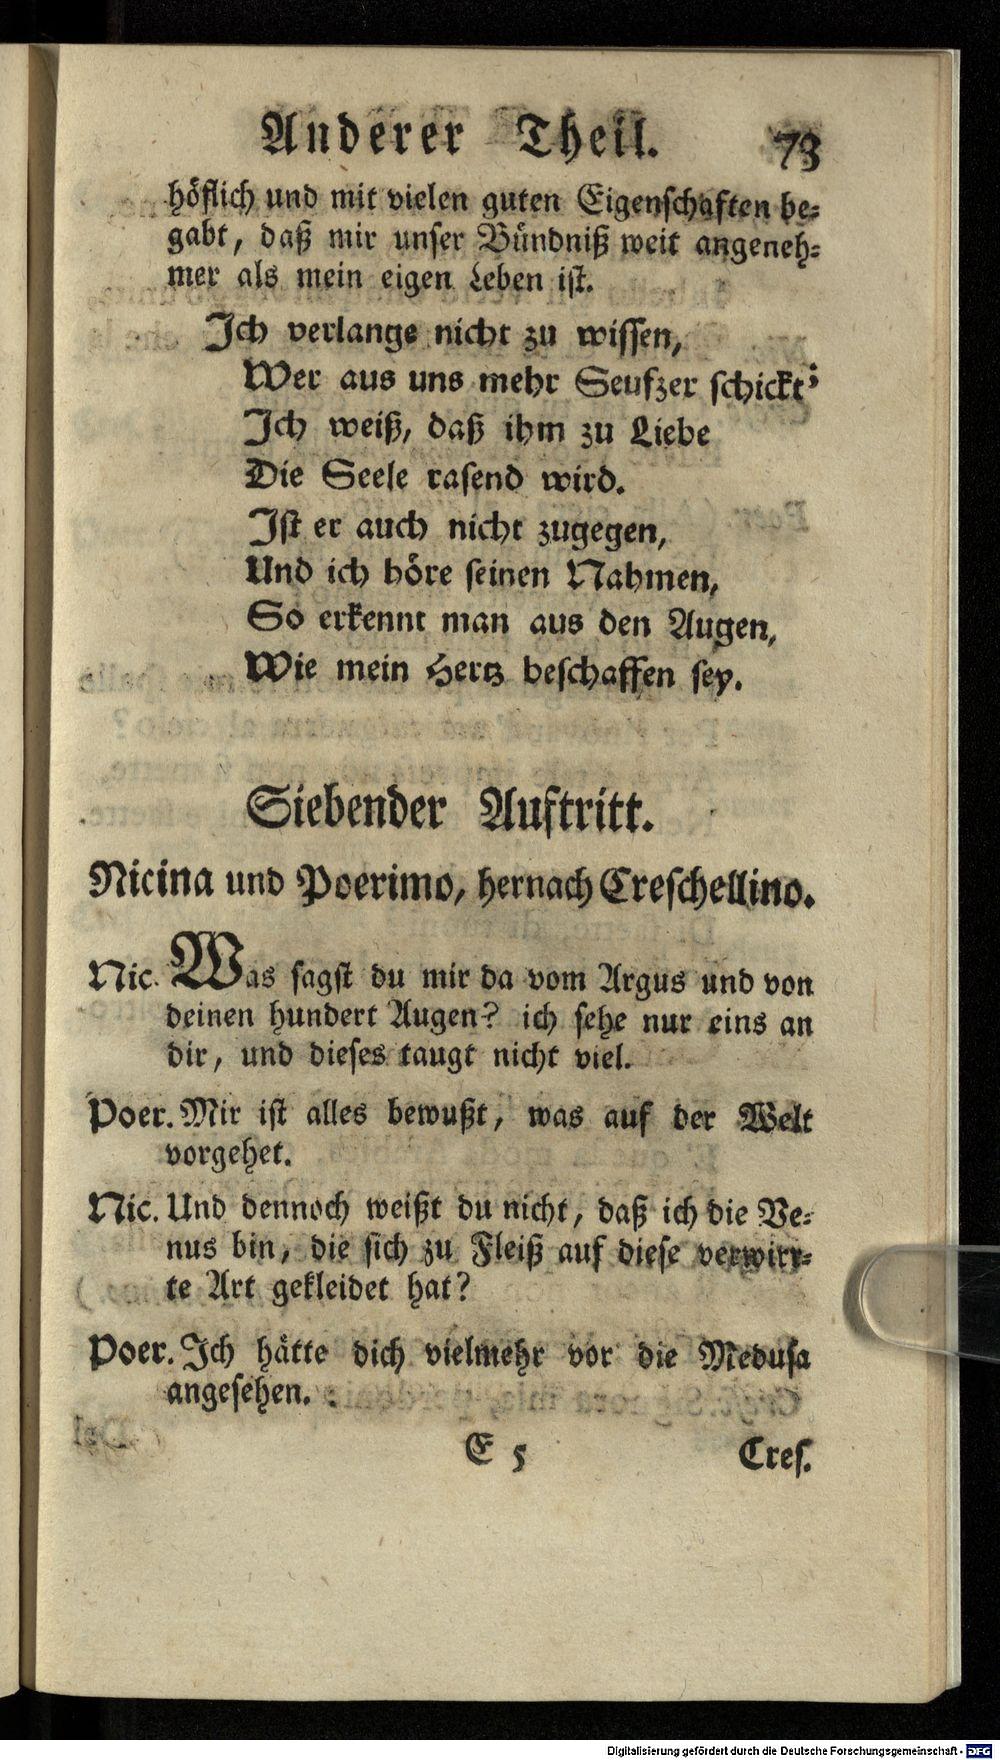 Anderer Theil. 73
höflich und mit vielen guten Eigenschaften be=
gabt, daß mir unser Bündniß weit angeneh=
mer als mein eigen Leben ist.
Ich verlange nicht zu wissen,
Wer aus uns mehr Seufzer schickt;
Ich weiß, daß ihm zu Liebe
Die Seele rasend wird.
Ist er auch nicht zugegen,
Und ich höre seinen Nahmen,
So erkennt man aus den Augen,
Wie mein Hertz beschaffen sey.
Siebender Auftritt.
Nicina und Poerimo, hernach Creschellino.
Nic. Was sagst du mir da vom Argus und von
deinen hundert Augen? ich sehe nur eins an
dir, und dieses taugt nicht viel.
Poer. Mir ist alles bewußt, was auf der Welt
vorgehet.
Nic. Und dennoch weißt du nicht, daß ich die Ve=
nus bin, die sich zu Fleiß auf diese verwirr=
te Art gekleidet hat?
Poer. Ich hätte dich vielmehr vor die Medusa
angesehen.
E 5 Cres.
Digitalisierung gefördert durch die Deutsche Forschungsgemeinschaft - DFG